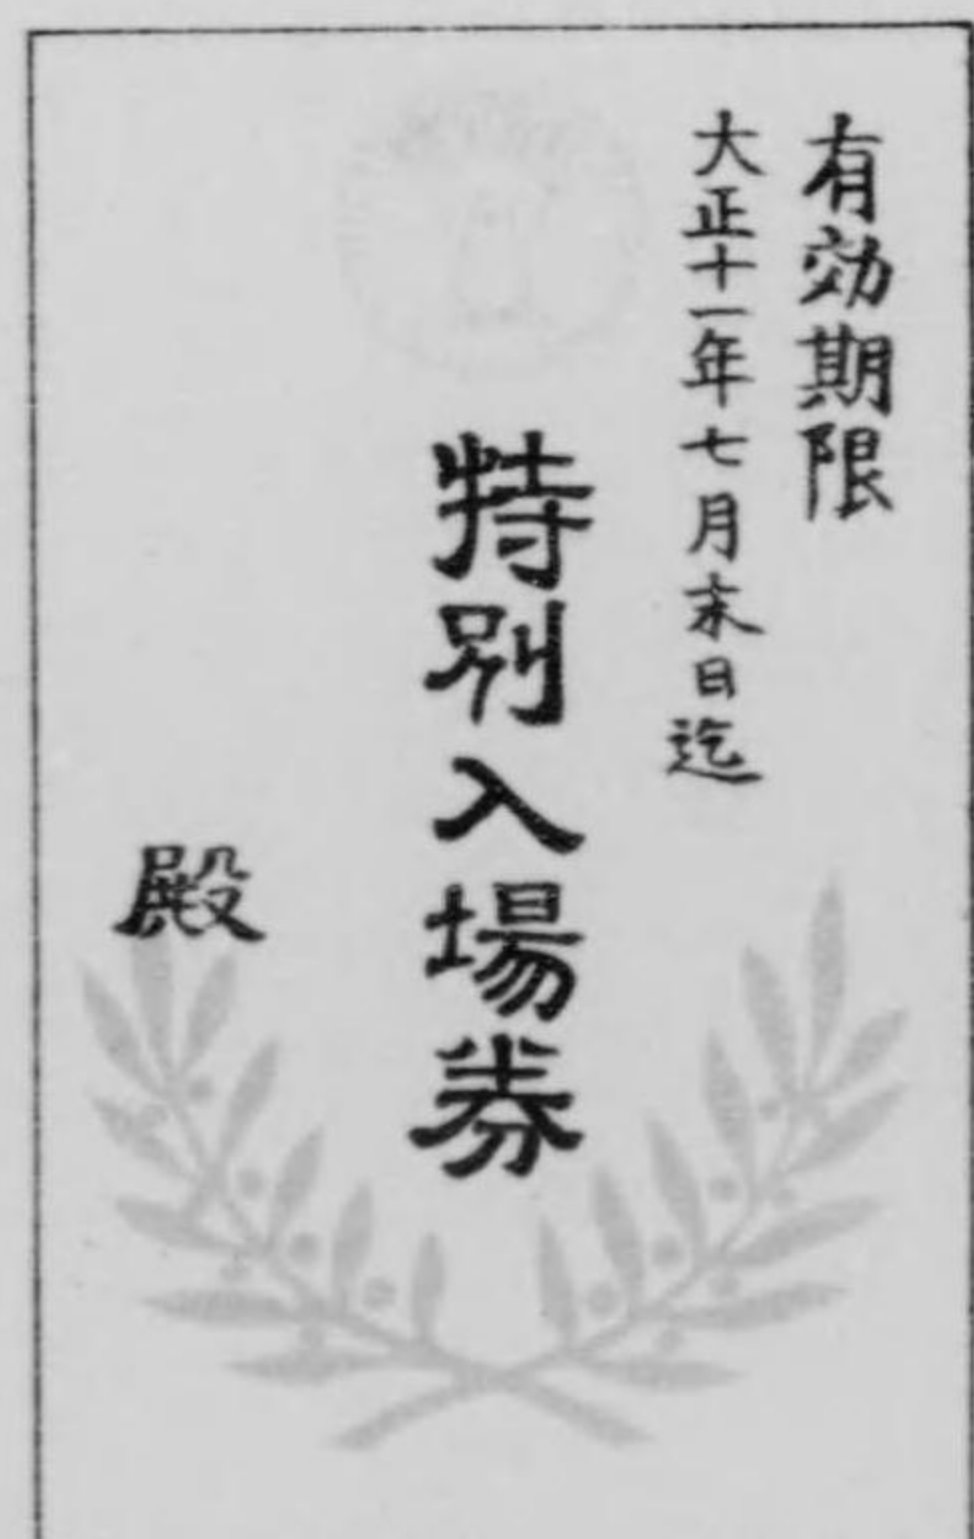 有効期限
大正十一年七月末日迄
特別入場券
殿